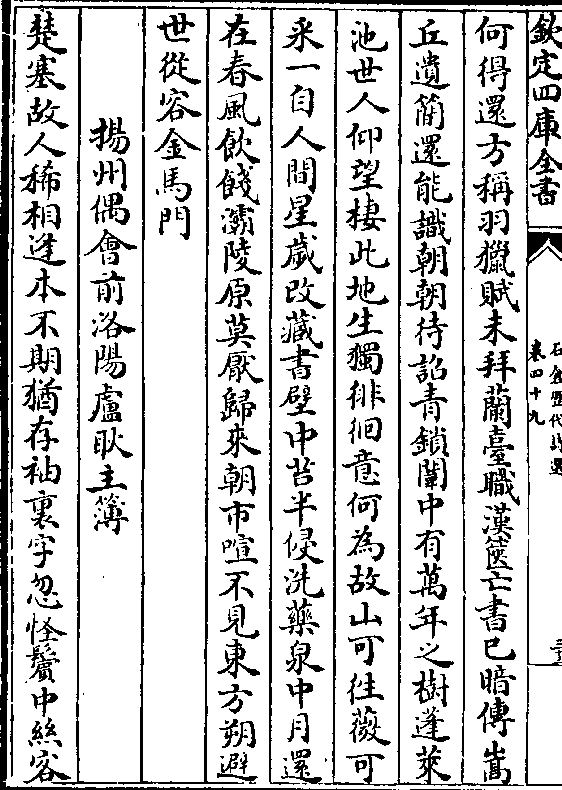 欽定四庫全書
石倉歷代詩選
卷四十九
何得還方稱羽獵賦未拜蘭臺職漢篋亡書已暗傳嵩
丘遺簡還能識朝朝待詔青鎖闈中有萬年之樹蓬萊
池世人仰望棲此地生獨徘徊意何為故山可往薇可
采一自人間星歲改藏書壁中苔半侵洗藥泉中月還
在春風飲餞灞陵原莫厭歸來朝市喧不見東方朔避
世從容金馬門
揚州偶會前洛陽盧耿主簿
楚塞故人稀相逢本不期猶存袖裏字忽怪鬢中絲客